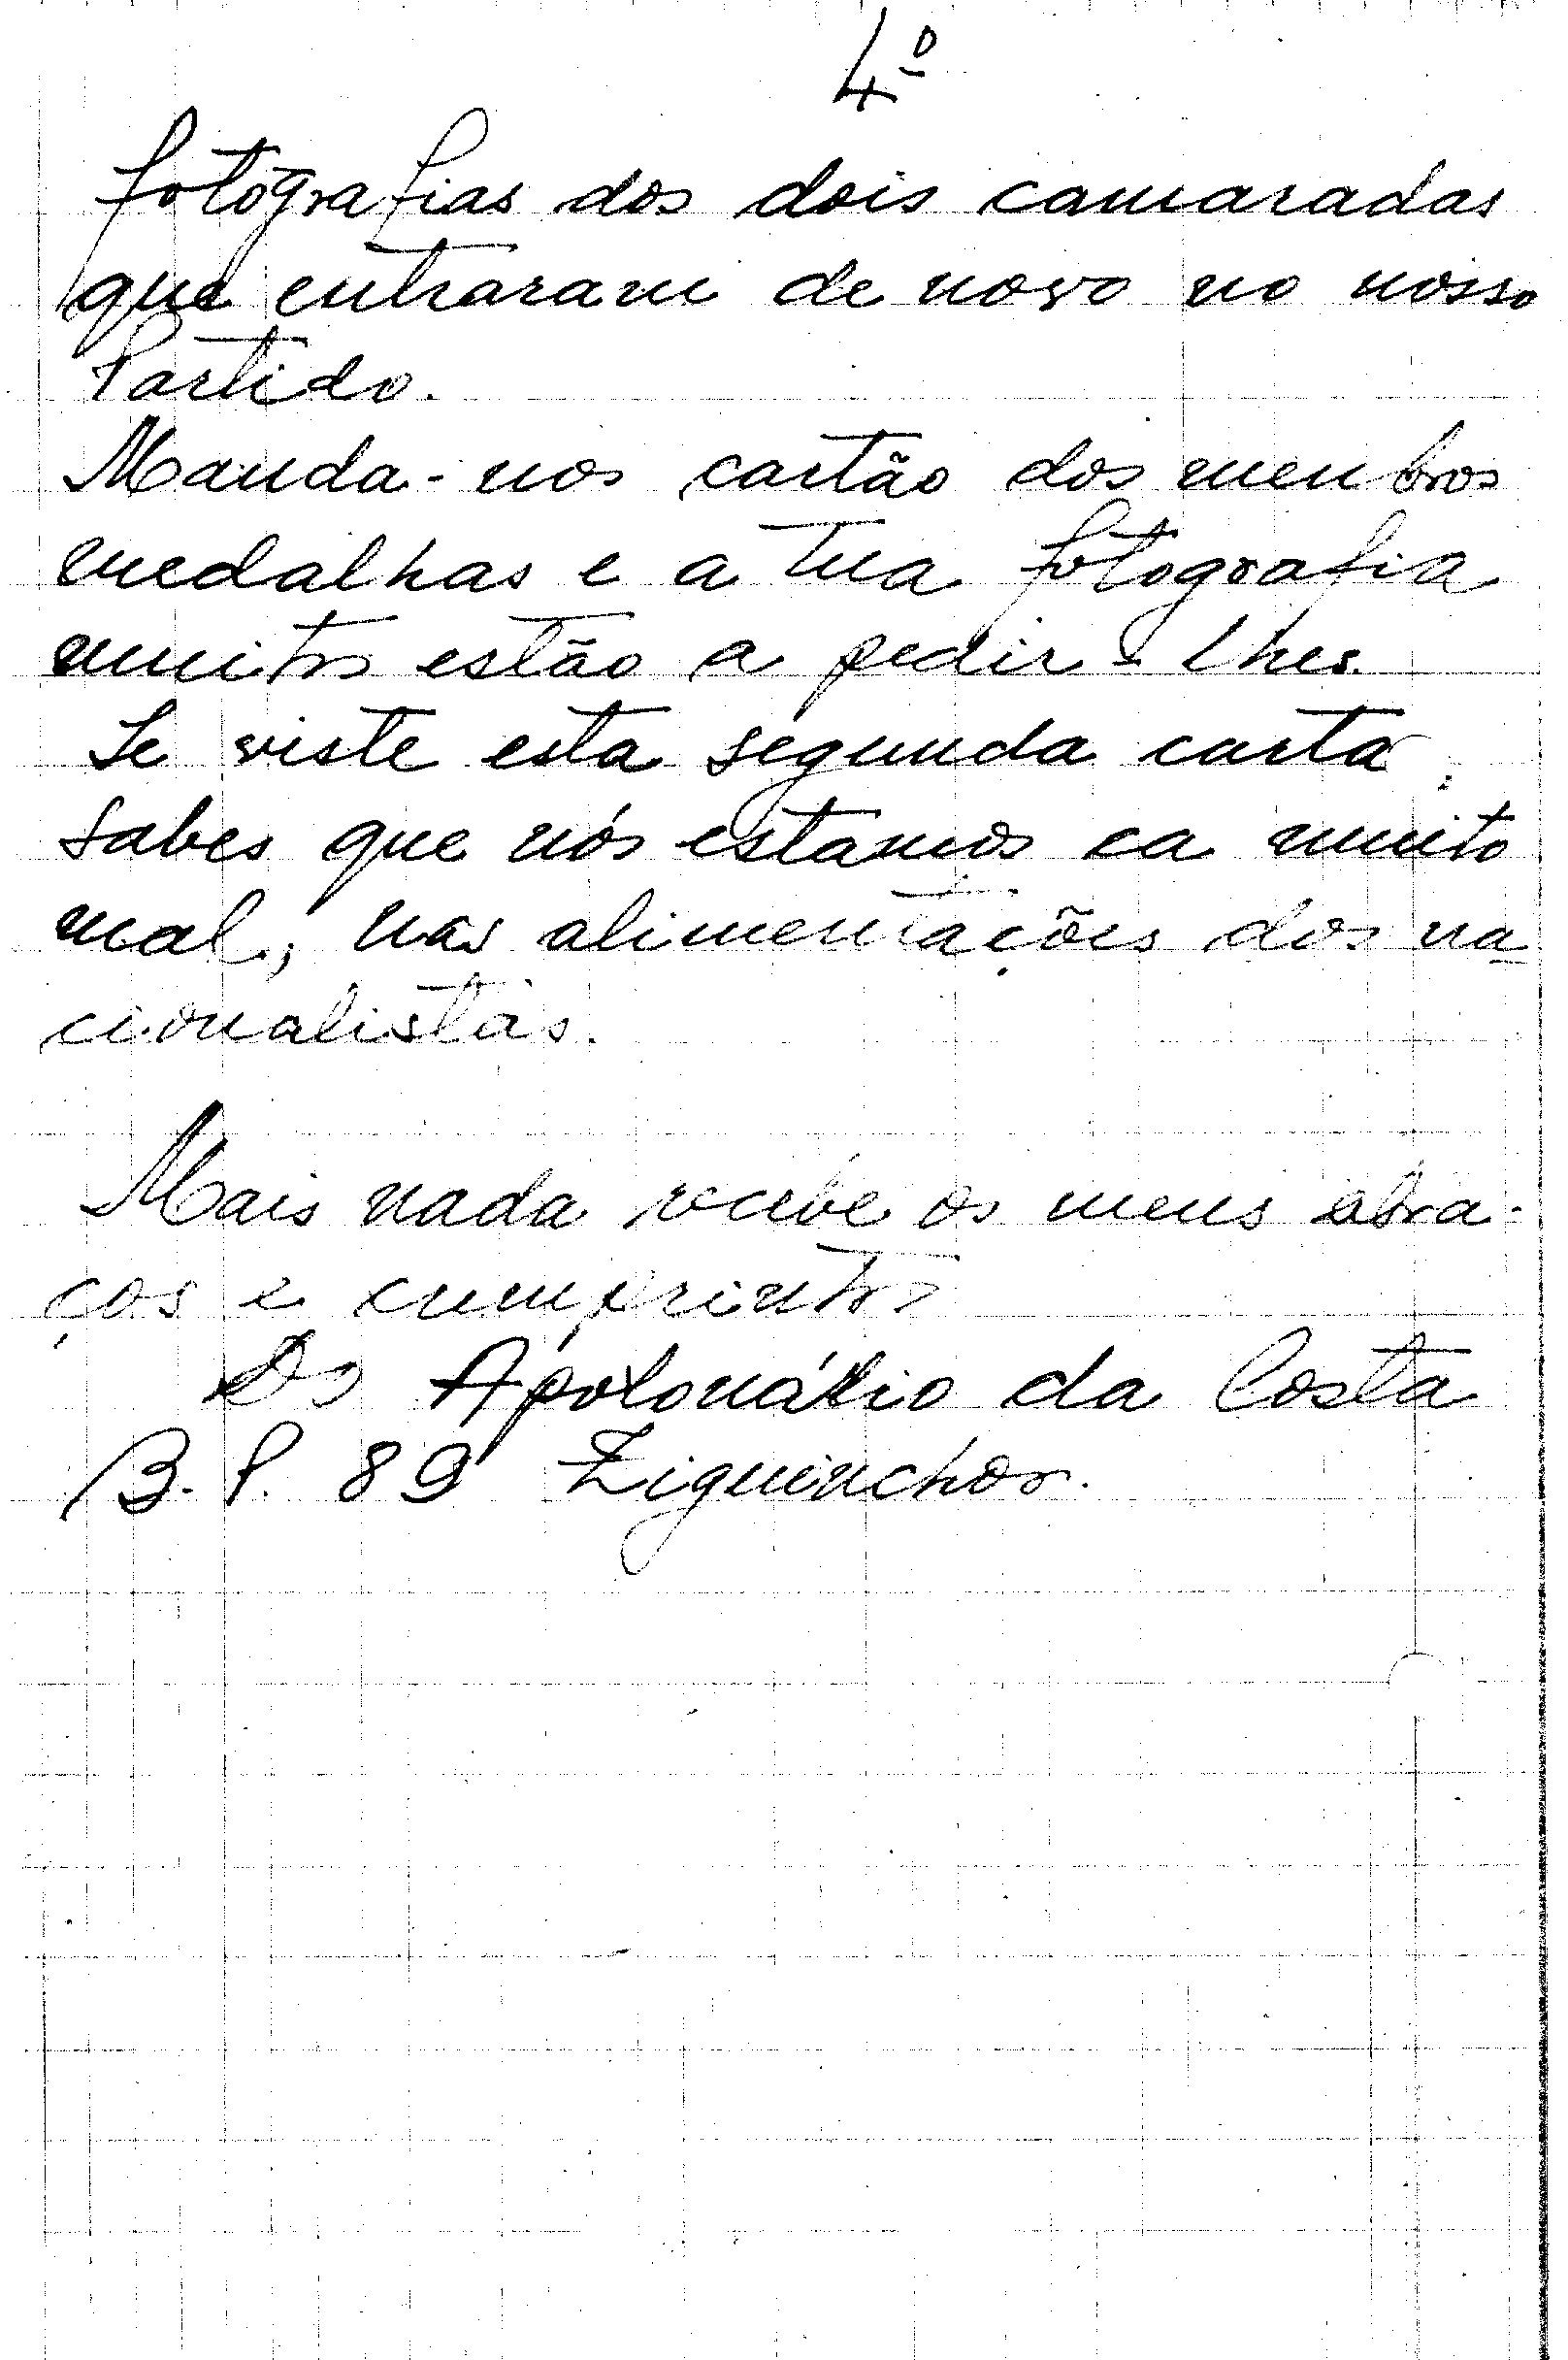 4º
fotógrafias dos dois camaradas
que entraram de novo no nosso
Partido.
Manda-nos cartão dos menbros
medalhas e a tua fotografia
muitos estão a pedir-lhes.
Se viste esta segunda carta
sabes que nós estamos ca muito
mal, nas alimentações dos na
cionalistas.
Mais nada recebe os meus abra-
ços e cumprintos
Do Apolonário da Costa
B.P. 89 Ziguinchor.